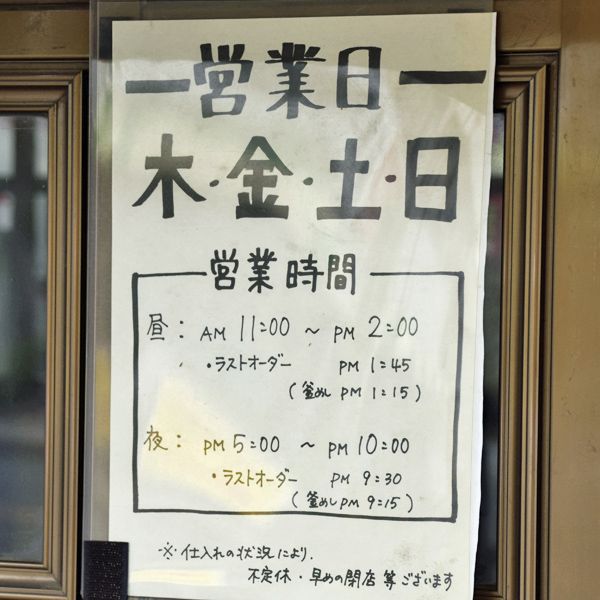 営業日
木・金・土・日
営業時間
昼: AM 11:00 ~ PM 2:00
・ラストオーダー PM 1:45
(釜めし PM 1:15)
夜: PM 5:00 ~ PM 10:00
・ラストオーダー PM 9:30
(釜めし PM 9:15)
※仕入れの状況により.
不定休・早めの閉店等ございます